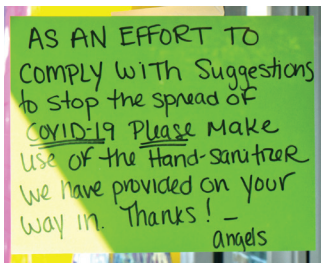 AS AN EFFORT TO
COMPLY WITH Suggestions
to stop the spread of
COVID-19 Please make
use of the Hand-sanitizer
we have provided on your
way in. Thanks! –
angels